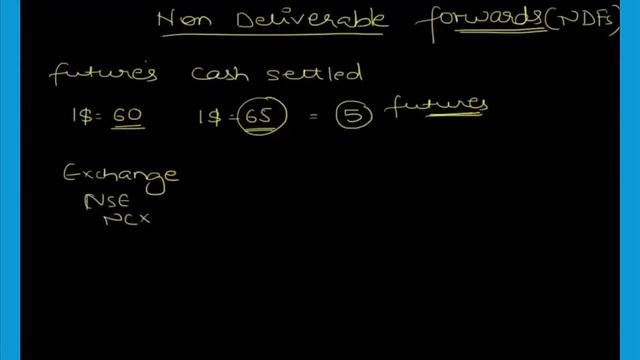 Non Deliverable forwards (NDFs)
future's cash settled
1$ = 60 1$ = 65 = 5 futures
Exchange
NSE
NCX